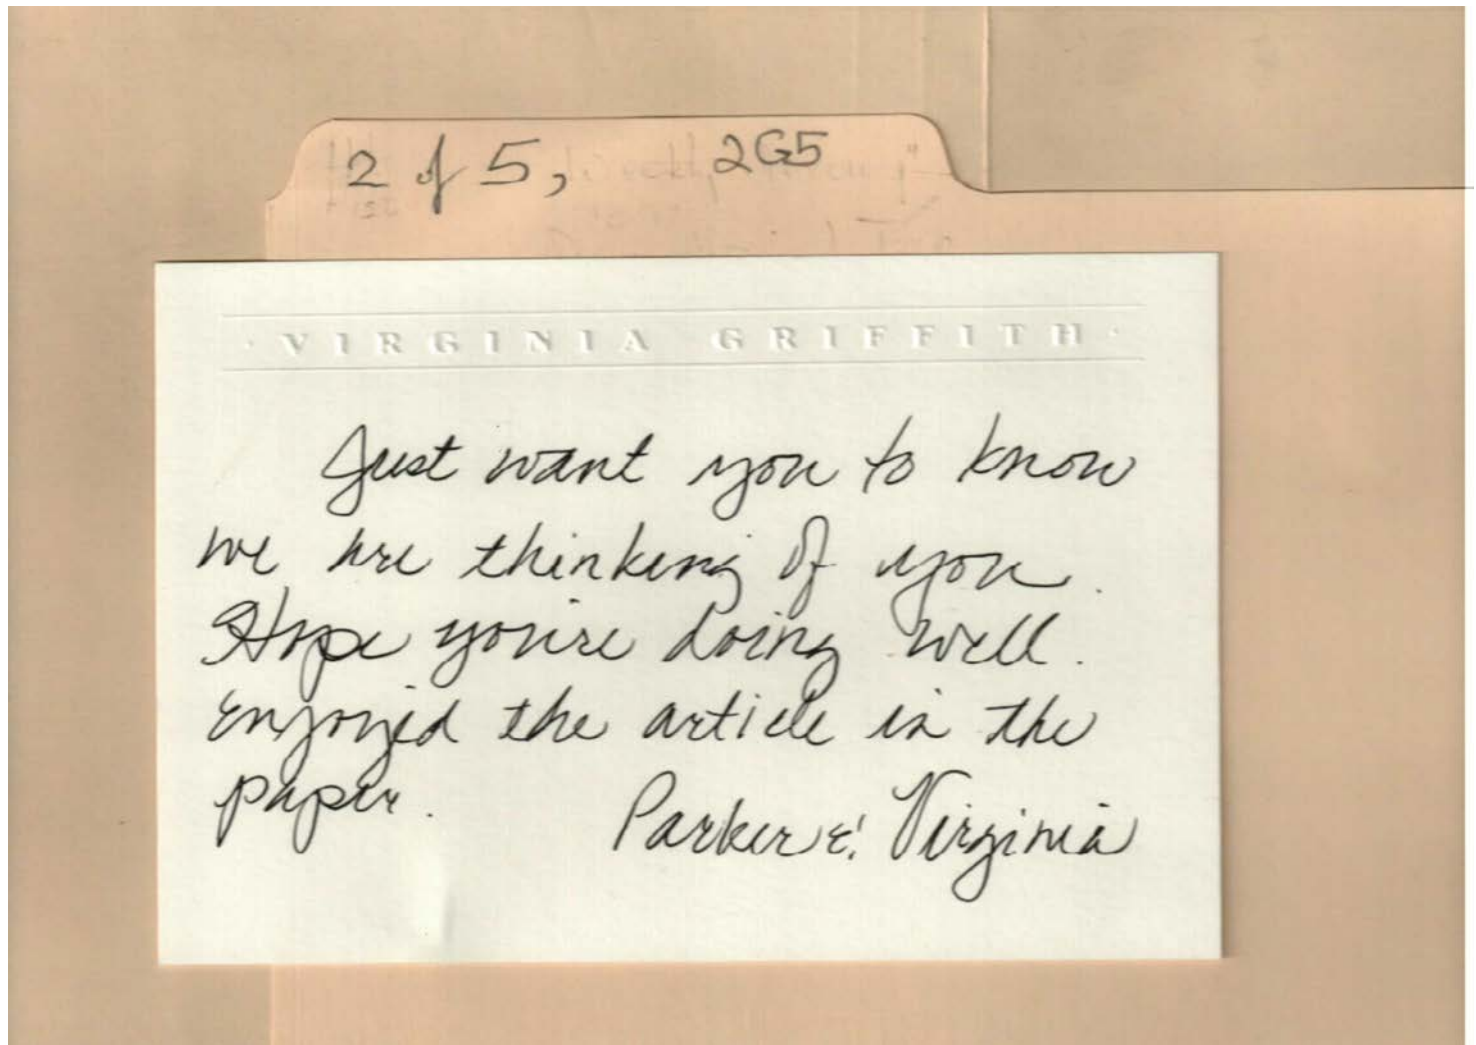 2 of 5, 2G5
· VIRGINIA GRIFFITH ·
Just want you to know
we are thinking of you.
Hope you're doing well.
Enjoyed the article in the
paper.
Parker & Virginia